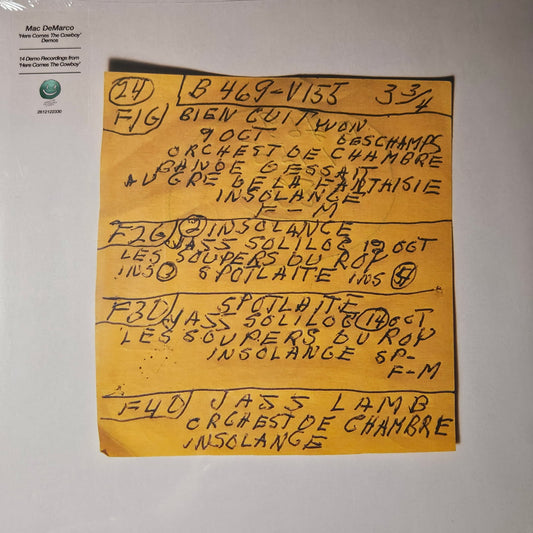 Mac DeMarco
'Here Comes The Cowboy'
Demos
14 Demo Recordings from
'Here Comes The Cowboy'
2612122330
24 B 469-V155 3 3/4
F1G BIEN CUIT YVON
9 OCT DESCHAMPS
ORCHEST DE CHAMBRE
BANDE DESSAIT
AU GRE DE LA FANTHISIE
INSOLANGE
F-M
F2G 2 INSOLANCE
JASS SOLILOC 12 OCT
LES SOUPERS DU ROY
INS SPOTLAITE INS
F3D SPOTLAITE
JASS SOLILOC 14 OCT
LES SOUPERS DU ROY
INSOLANGE SP-
F-M
F4D JASS LAMB
ORCHEST DE CHAMBRE
INSOLANGE